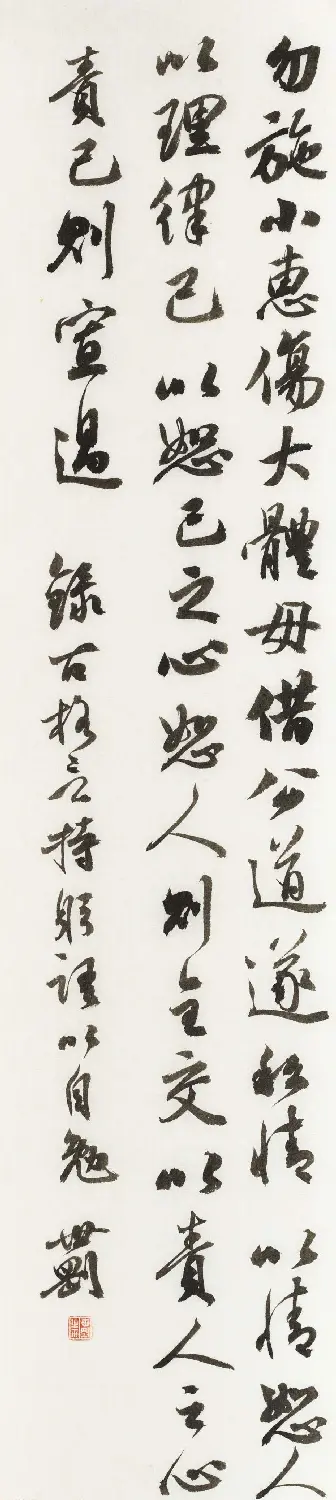 勿施小惠傷大體毋借公道遂私情以情恕人
以理律己以恕己之心恕人則全交以責人之心
責己則寡過錄古格言持躬語以自勉